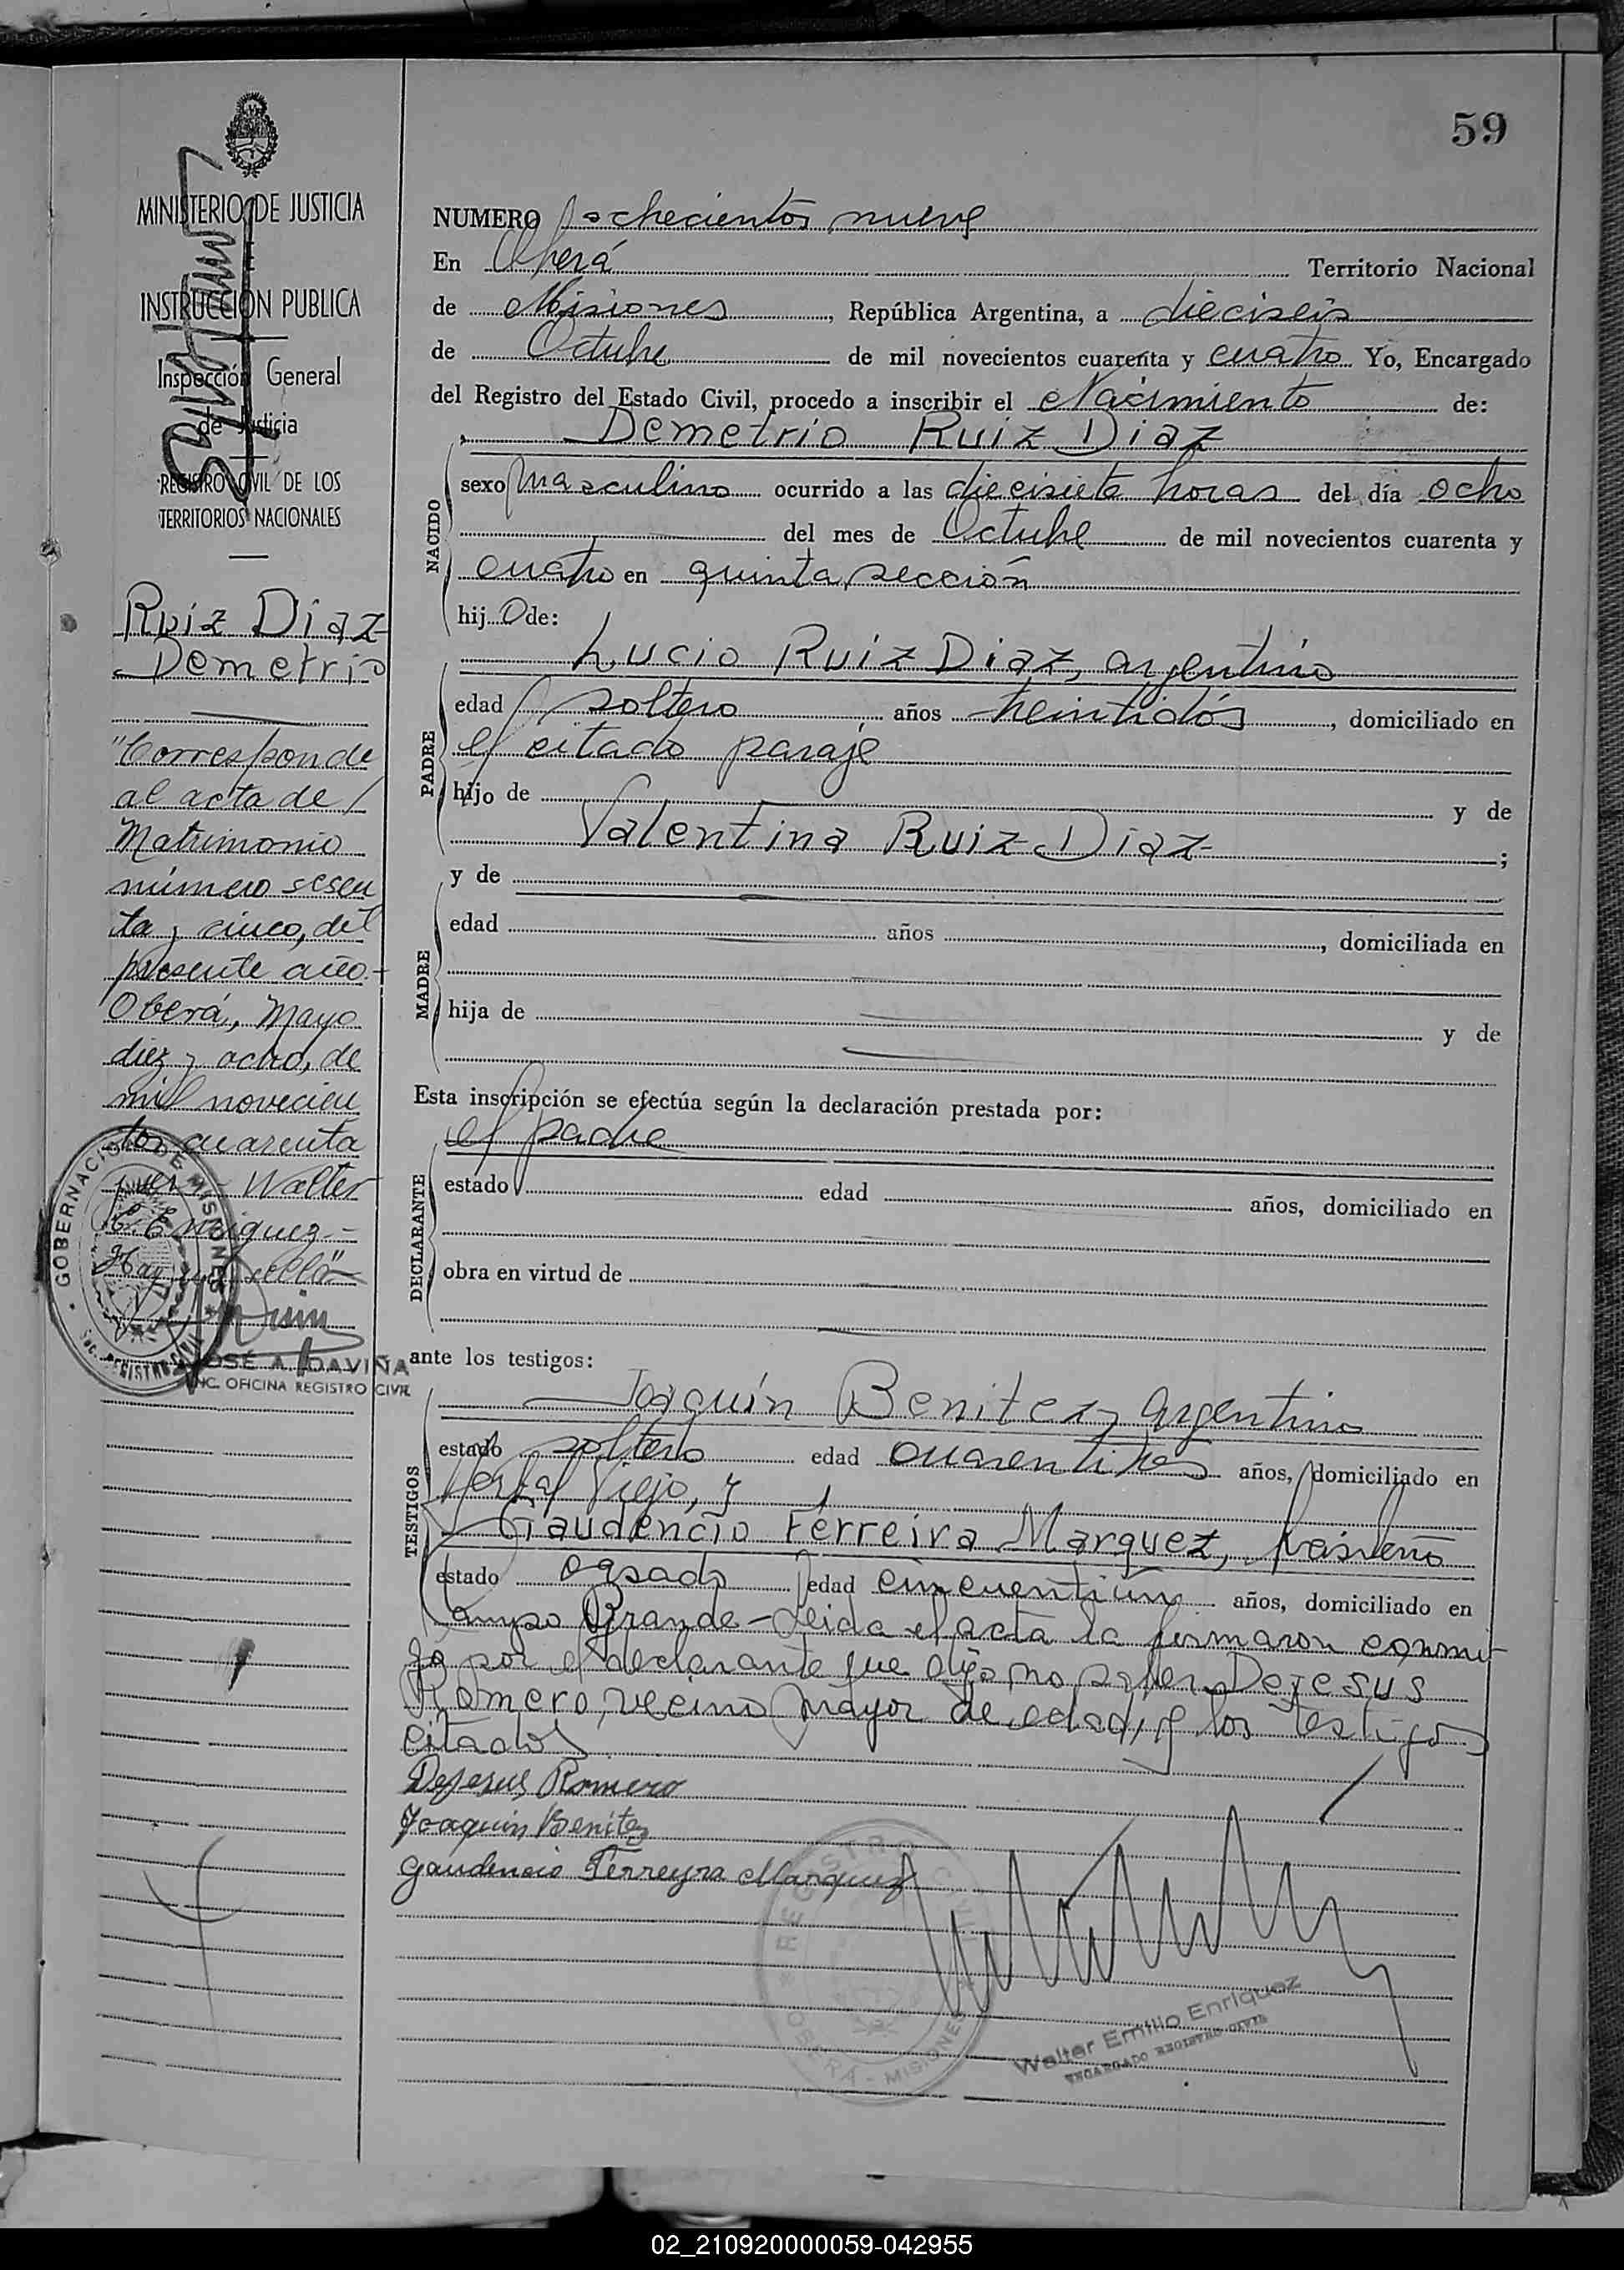 59
MINISTERIO DE JUSTICIA
E
INSTRUCCION PUBLICA
Inspección General
de Justicia
REGISTRO CIVIL DE LOS
TERRITORIOS NACIONALES
Ruiz Diaz
Demetrio
"Corresponde
al acta de
Matrimonio
número sesen
ta y cinco, del
presente año.
Oberá, Mayo
diez y ocho, de
mil novecien
tos cuarenta
Walter
E. Enriquez.-
Hay un sello"
GOBERNACION DE MISIONES
Sec. REGISTRO CIVIL
JOSÉ A. DAVIÑA
ENC. OFICINA REGISTRO CIVIL
NUMERO ochocientos nueve
En Oberá Territorio Nacional
de Misiones, República Argentina, a dieciseis
de Octubre de mil novecientos cuarenta y cuatro Yo, Encargado
del Registro del Estado Civil, procedo a inscribir el Nacimiento de:
Demetrio Ruiz Diaz
NACIDO
sexo masculino ocurrido a las diecisiete horas del día ocho
del mes de Octubre de mil novecientos cuarenta y
cuatro en quinta sección
hijo de:
Lucio Ruiz Diaz, argentino
PADRE
edad soltero años treintidós, domiciliado en
el citado paraje
hijo de y de
Valentina Ruiz Diaz ;
y de
MADRE
edad años, domiciliada en
hija de y de
Esta inscripción se efectúa según la declaración prestada por:
el padre
DECLARANTE
estado edad años, domiciliado en
obra en virtud de
ante los testigos:
Joaquín Benitez, argentino
TESTIGOS
estado soltero edad cuarentitres años, domiciliado en
Yerbal Viejo, y
Gaudencio Ferreira Marquez, brasileño
estado casado edad cincuentiún años, domiciliado en
Campo Grande- Leida el acta la firmaron conmi-
go por el declarante que dijo no saber Dejesus
Romero, vecino mayor de edad, y los testigos
citados
Dejesus Romero
Joaquin Benitez
Gaudencio Ferreyra Marquez
REGISTRO CIVIL
OBERÁ - MISIONES
Walter Emilio Enriquez
ENCARGADO REGISTRO CIVIL
02_210920000059-042955